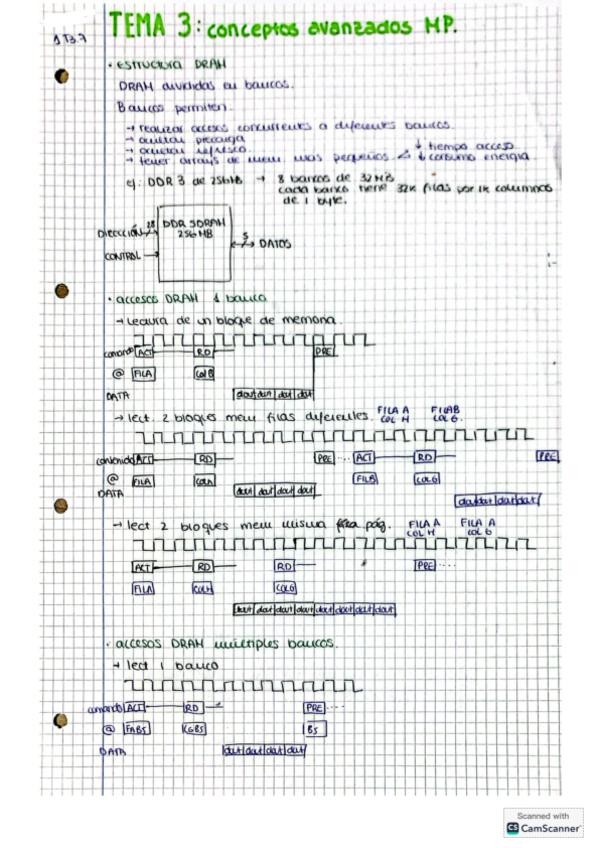 1 T3.7
TEMA 3: conceptos avanzados MP.
· estructura DRAM
DRAM divididas en bancos.
Bancos permiten.
→ realizar accesos concurrentes a diferentes bancos.
→ ocultar precarga
→ ocultar refresco
→ tener arrays de mem mas pequeños < ↓ tiempo acceso
↓ consumo energia
ej: DDR 3 de 256MB → 8 bancos de 32 MB
cada banco tiene 32K filas por 1K columnas
de 1 byte.
DDR SDRAM
256MB
DIRECCIÓN 28
CONTROL →
8 DATOS
· accesos DRAM 1 banco
→ Lectura de un bloque de memoria.
comando ACT RD PRE
@ FILA COL
DATA
dat dat dat dat
→ lect. 2 bloques mem filas diferentes. FILA A FILA B
COL H COL G.
ACT RD PRE ... ACT RD PRE
@ FILA COLH FILB COLG
DATA dat dat dat dat
dat dat dat dat
→ lect 2 bloques mem misma pág. FILA A FILA A
COL H COL G
ACT RD RD PRE ...
FILA COLH COLG
dat dat dat dat dat dat dat dat
· accesos DRAM múltiples bancos.
→ lect 1 banco
comando ACT RD PRE ....
@ FAB5 CGB5 B5
DATA dat dat dat dat
Scanned with
CS CamScanner